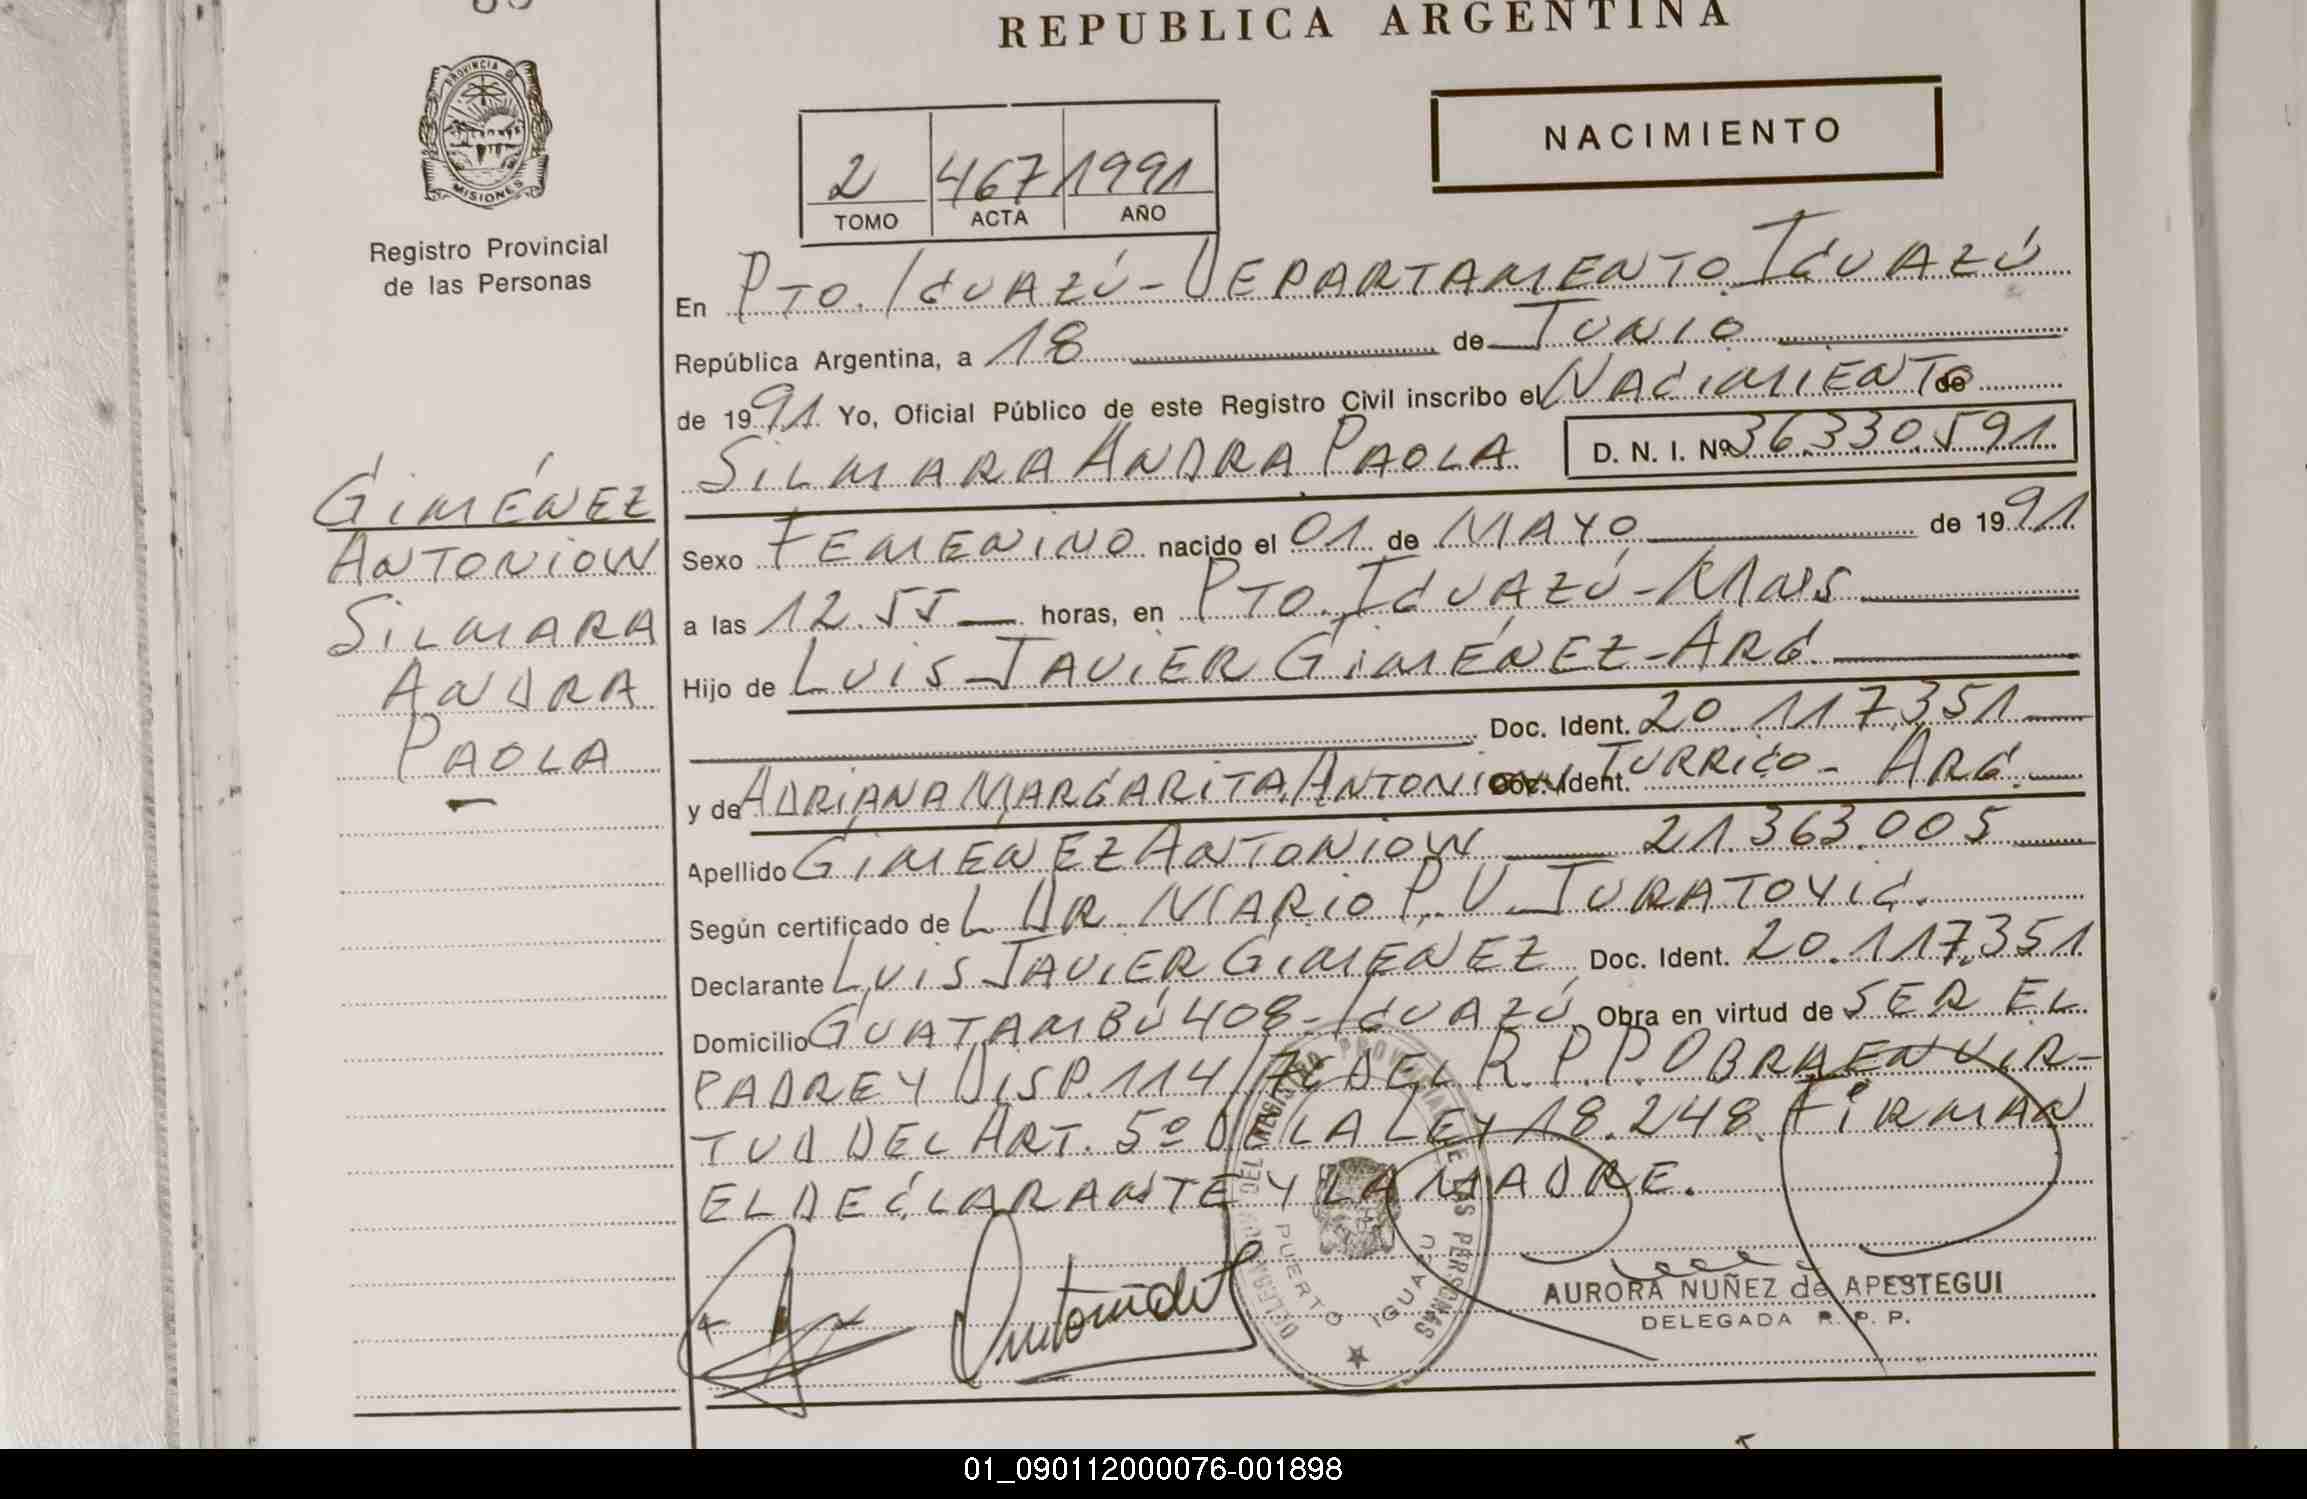 REPUBLICA ARGENTINA
PROVINCIA DE
MISIONES
Registro Provincial
de las Personas
NACIMIENTO
2 467 1991
TOMO ACTA AÑO
En PTO. IGUAZÚ - DEPARTAMENTO IGUAZÚ
República Argentina, a 18 de JUNIO
de 1991 Yo, Oficial Público de este Registro Civil inscribo el NACIMIENTO de
SILMARA ANDRA PAOLA D. N. I. Nº 36.330.591
GIMÉNEZ
ANTONIOW
SILMARA
ANDRA
PAOLA
Sexo FEMENINO nacido el 01 de MAYO de 1991
a las 12.55 horas, en PTO. IGUAZÚ - MNES
Hijo de LUIS JAVIER GIMÉNEZ - ARG.
Doc. Ident. 20.117.351
y de ADRIANA MARGARITA ANTONIOW Doc. Ident. TURRICO - ARG.
Apellido GIMÉNEZ ANTONIOW 21.363.005
Según certificado de L DR. MARIO P. V. JURATOVIC.
Declarante LUIS JAVIER GIMENEZ Doc. Ident. 20.117.351
Domicilio GUATAMBÚ 408 - IGUAZÚ Obra en virtud de SER EL
PADRE Y DISP. 114/ DEL R. P. P. OBRA EN VIR-
TUD DEL ART. 5º DE LA LEY 18.248. FIRMAN
EL DECLARANTE Y LA MADRE.
DELEGACION DEL REGISTRO PROVINCIAL DE LAS PERSONAS
PUERTO IGUAZU
AURORA NUÑEZ de APESTEGUI
DELEGADA R. P. P.
01_090112000076-001898